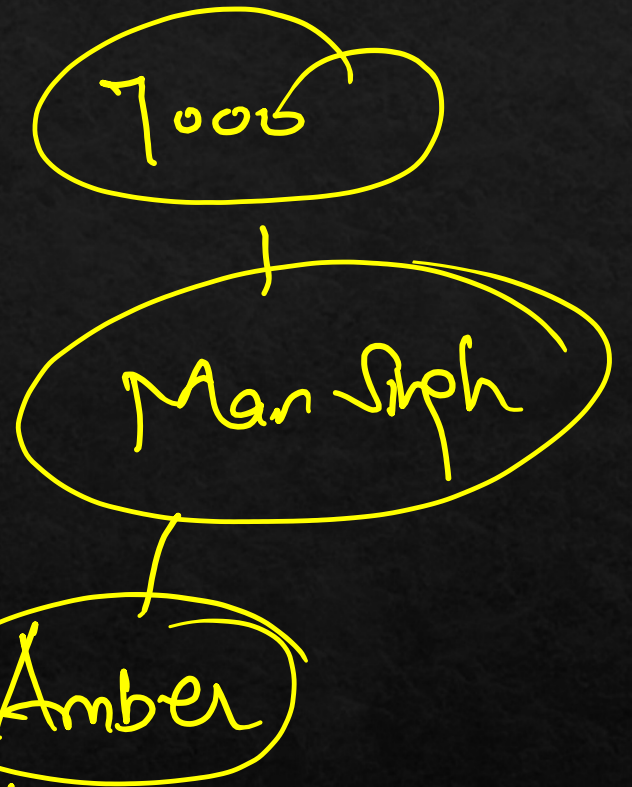 7000
Man Singh
Amber